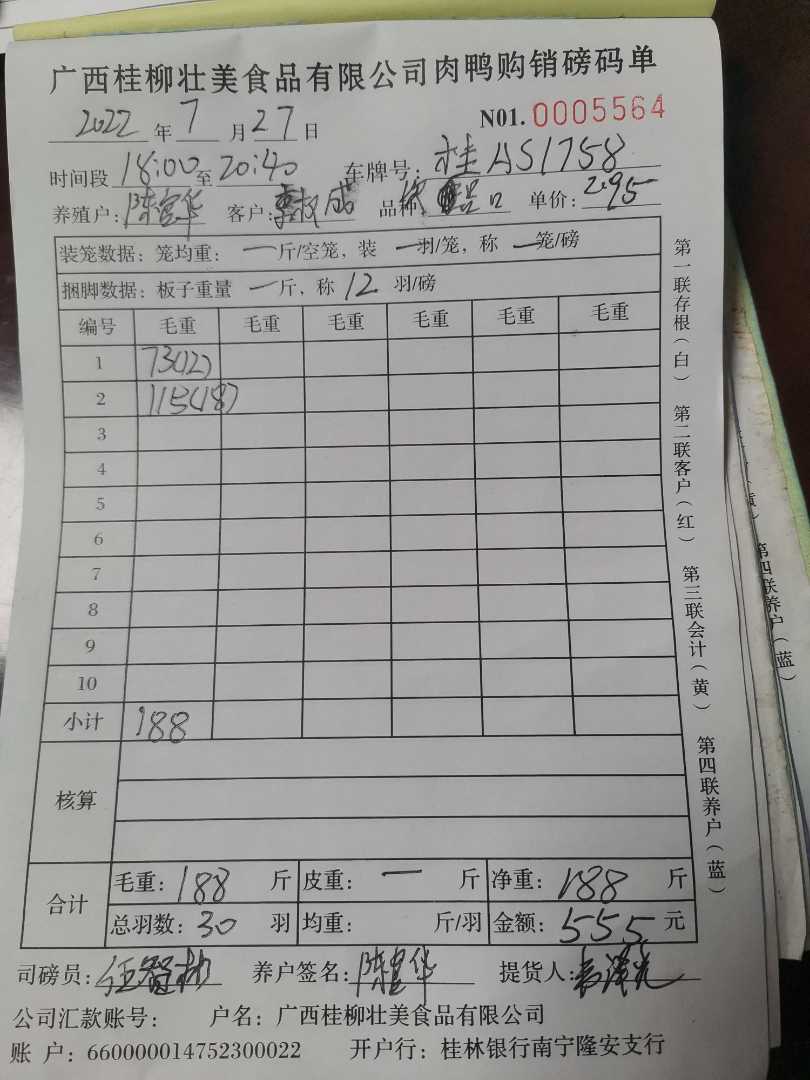 广西桂柳壮美食品有限公司肉鸭购销磅码单
2022年7月27日 N01. 0005564
时间段18:00至20:40 车牌号:桂AS1758
养殖户: 陈富华 客户: 成 品种: 单价: 2.95
装笼数据:笼均重:一斤/空笼,装一羽/笼,称一笼/磅
捆脚数据:板子重量一斤,称12羽/磅
编号 毛重 毛重 毛重 毛重 毛重 毛重
1 73(12)
2 115(18)
3
4
5
6
7
8
9
10
小计 188
核算
合计
毛重:188斤 皮重:一斤 净重:188斤
总羽数:30羽 均重: 斤/羽 金额:555元
司磅员: 养户签名:陈富华 提货人:
公司汇款账号: 户名:广西桂柳壮美食品有限公司
账 户:660000014752300022 开户行:桂林银行南宁隆安支行
第一联存根(白) 第二联客户(红) 第三联会计(黄) 第四联养户(蓝)
第四联养户(蓝)